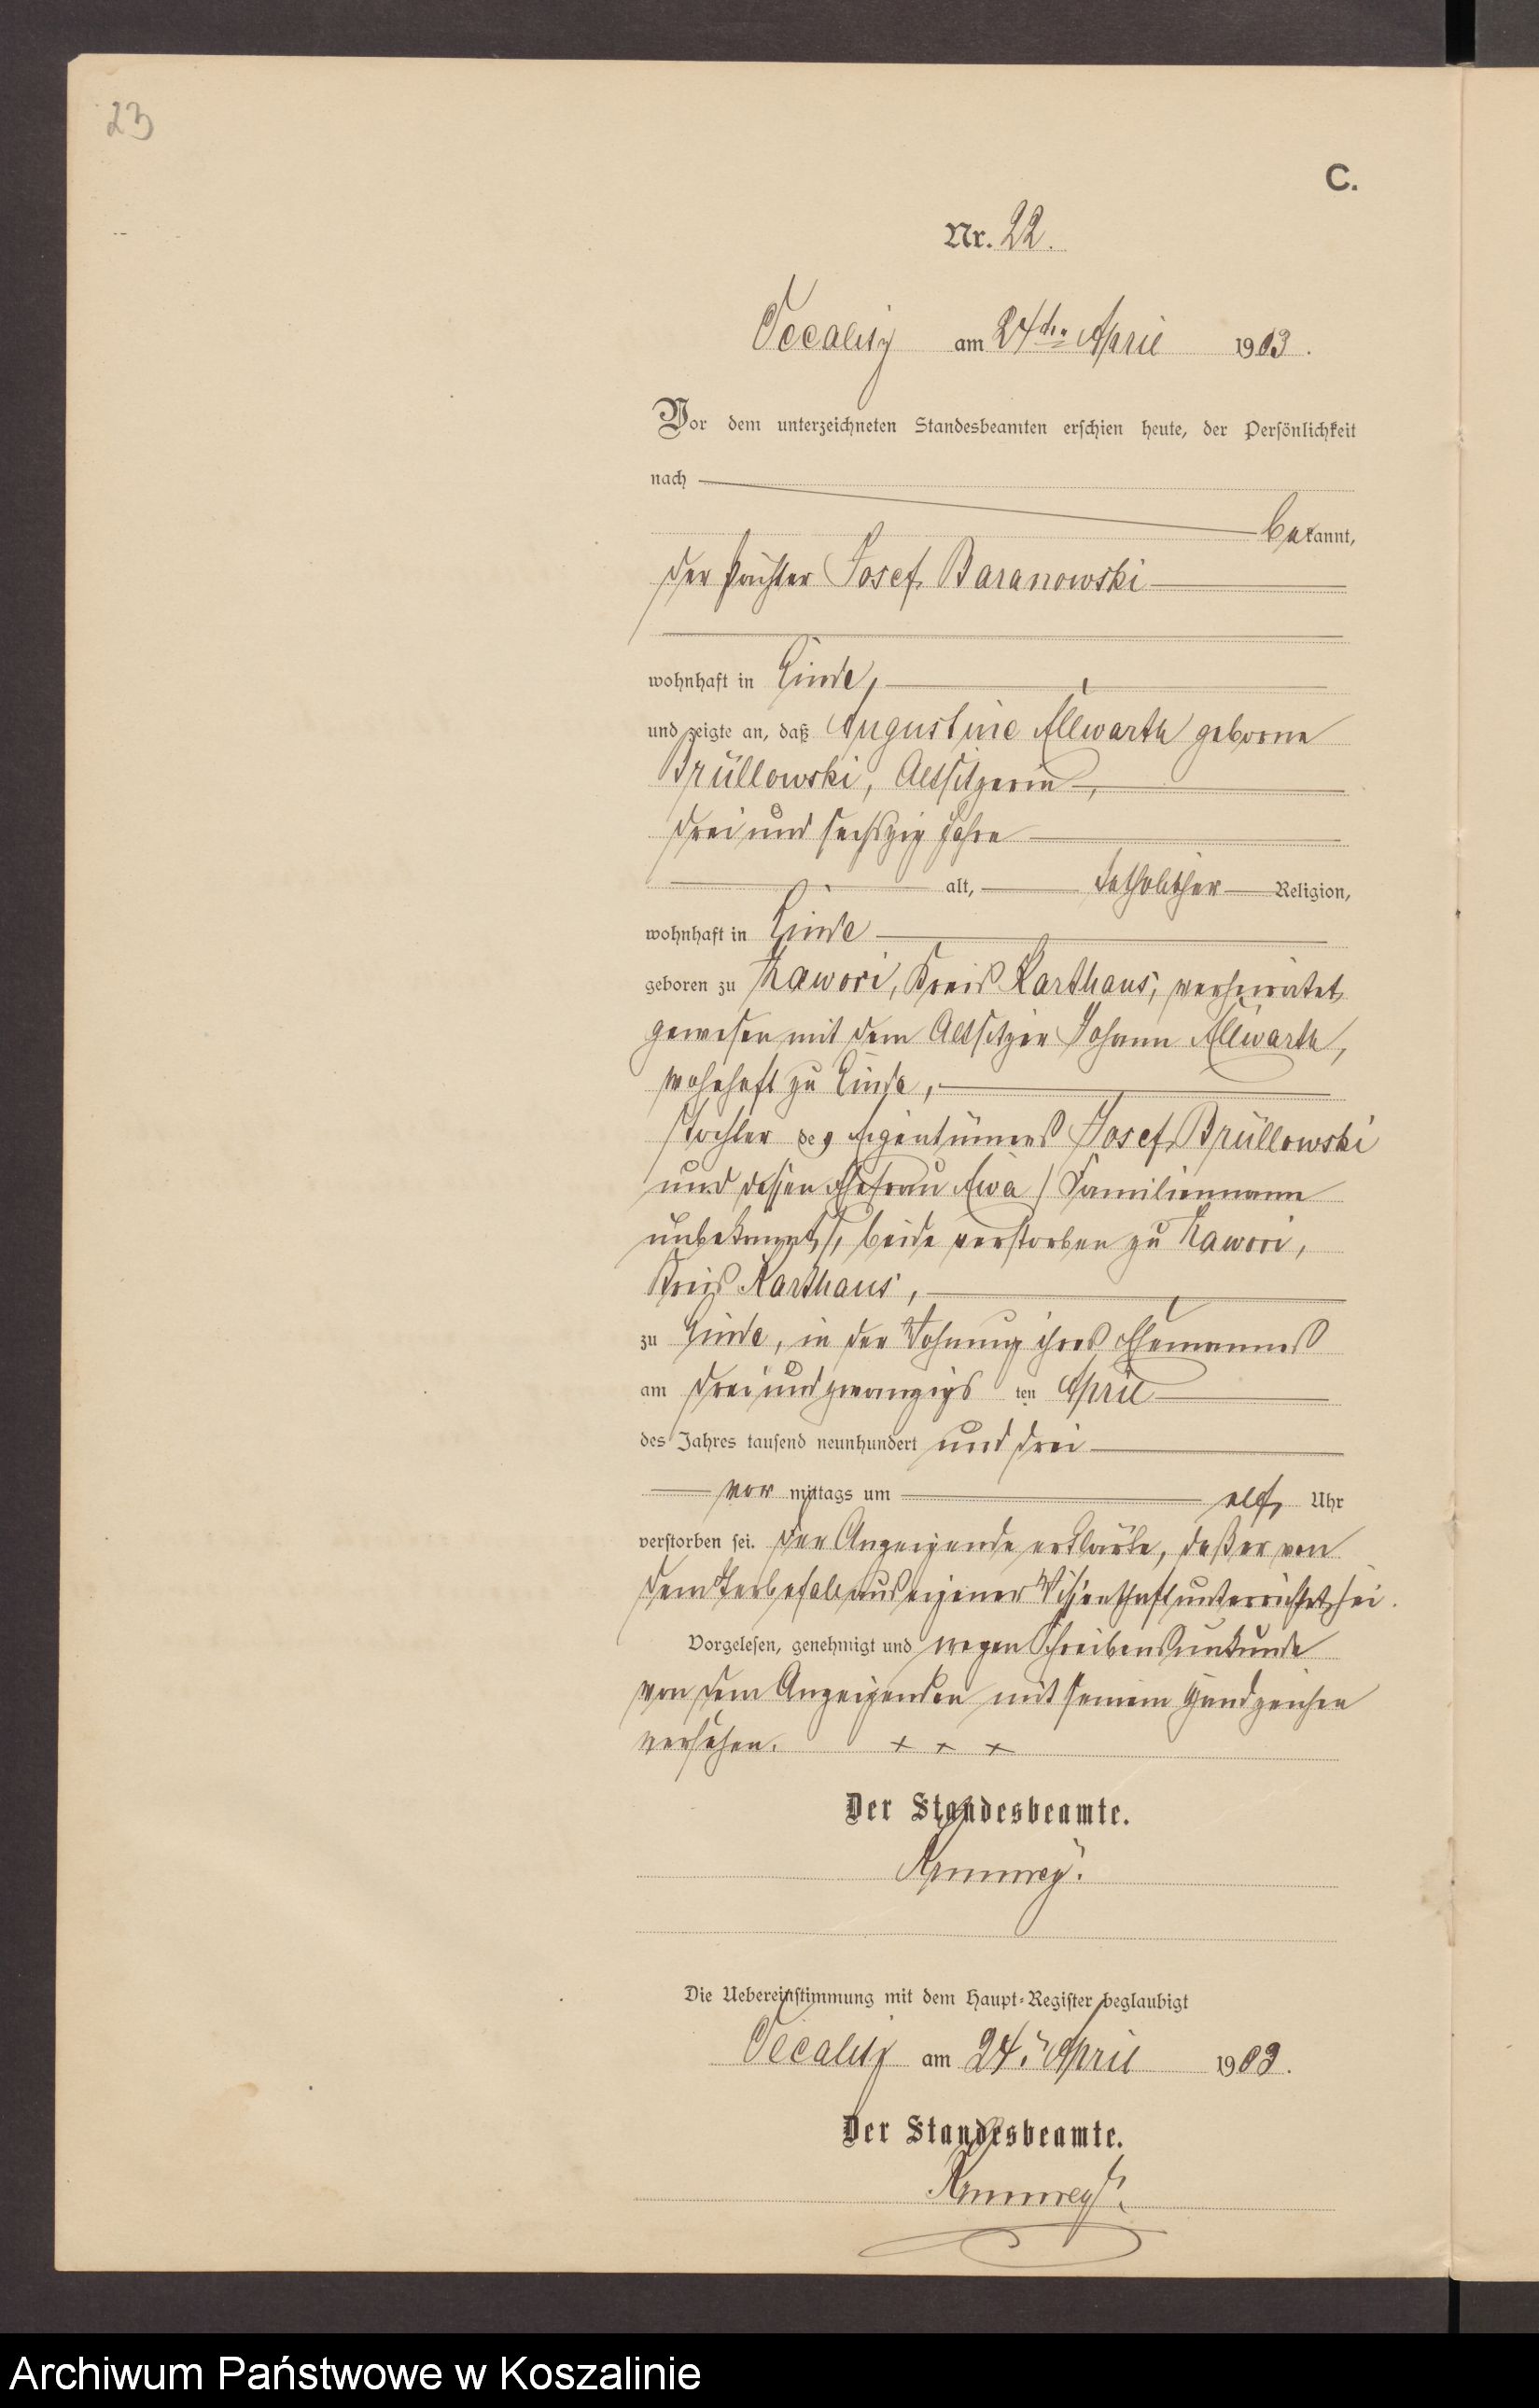 23
C.
Nr. 22.
am 24ten April 1903.
Vor dem unterzeichneten Standesbeamten erschien heute, der Persönlichkeit
nach
bekannt,
der Pächter Josef Baranowski
wohnhaft in Linde,
und zeigte an, daß Augustine Allwarth geborne
Brüllowski, Altsitzerin,
drei und sechszig Jahre
alt, katholischer Religion,
wohnhaft in Linde
geboren zu Zawori, Kreis Karthaus, verheiratet
gewesen mit dem Altsitzer Johann Allwarth,
wohnhaft zu Linde,
Tochter des Eigentümers Josef Brüllowski
und dessen Ehefrau Ewa (Familienname
unbekannt), beide verstorben zu Zawori,
Kreis Karthaus,
zu Linde, in der Wohnung ihres Ehemannes
am drei und zwanzigsten April
des Jahres tausend neunhundert und drei
vor mittags um elf Uhr
verstorben sei. Der Anzeigende erklärte, daß er von
dem Sterbefalle aus eigener Wissenschaft unterrichtet sei.
Vorgelesen, genehmigt und wegen Schreibensunkunde
von dem Anzeigenden mit seinem Handzeichen
versehen. + + +
Der Standesbeamte.
Die Uebereinstimmung mit dem Haupt-Register beglaubigt
am 24. April 1903.
Der Standesbeamte.
Archiwum Państwowe w Koszalinie